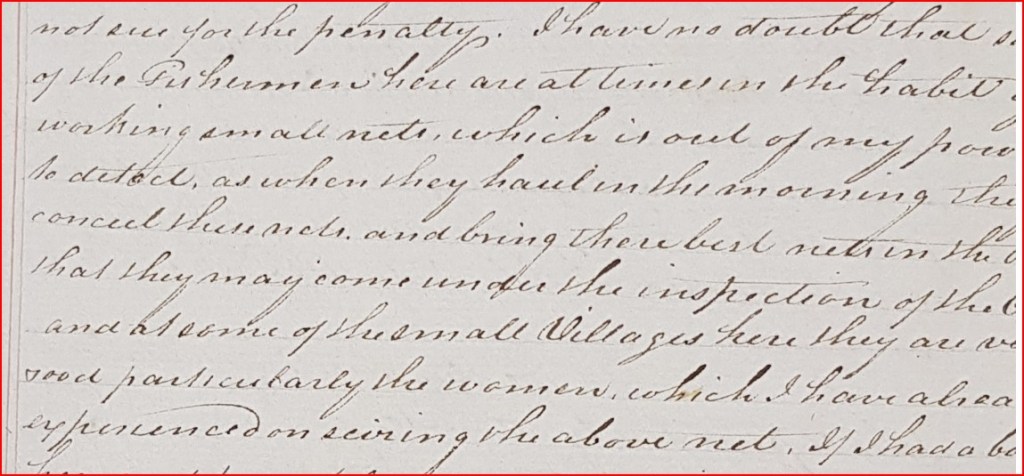 not sue for the penalty. I have no doubt that
of the Fishermen here are at times in the habit
working small nets, which is out of my pow
to detect, as when they haul in the morning the
conceel these nets. and bring there best nets in the
that they may come under the inspection of the
and at some of the small Villages here they are ve
particularly the women, which I have alrea
experienced on seizing the above net. If I had a bo